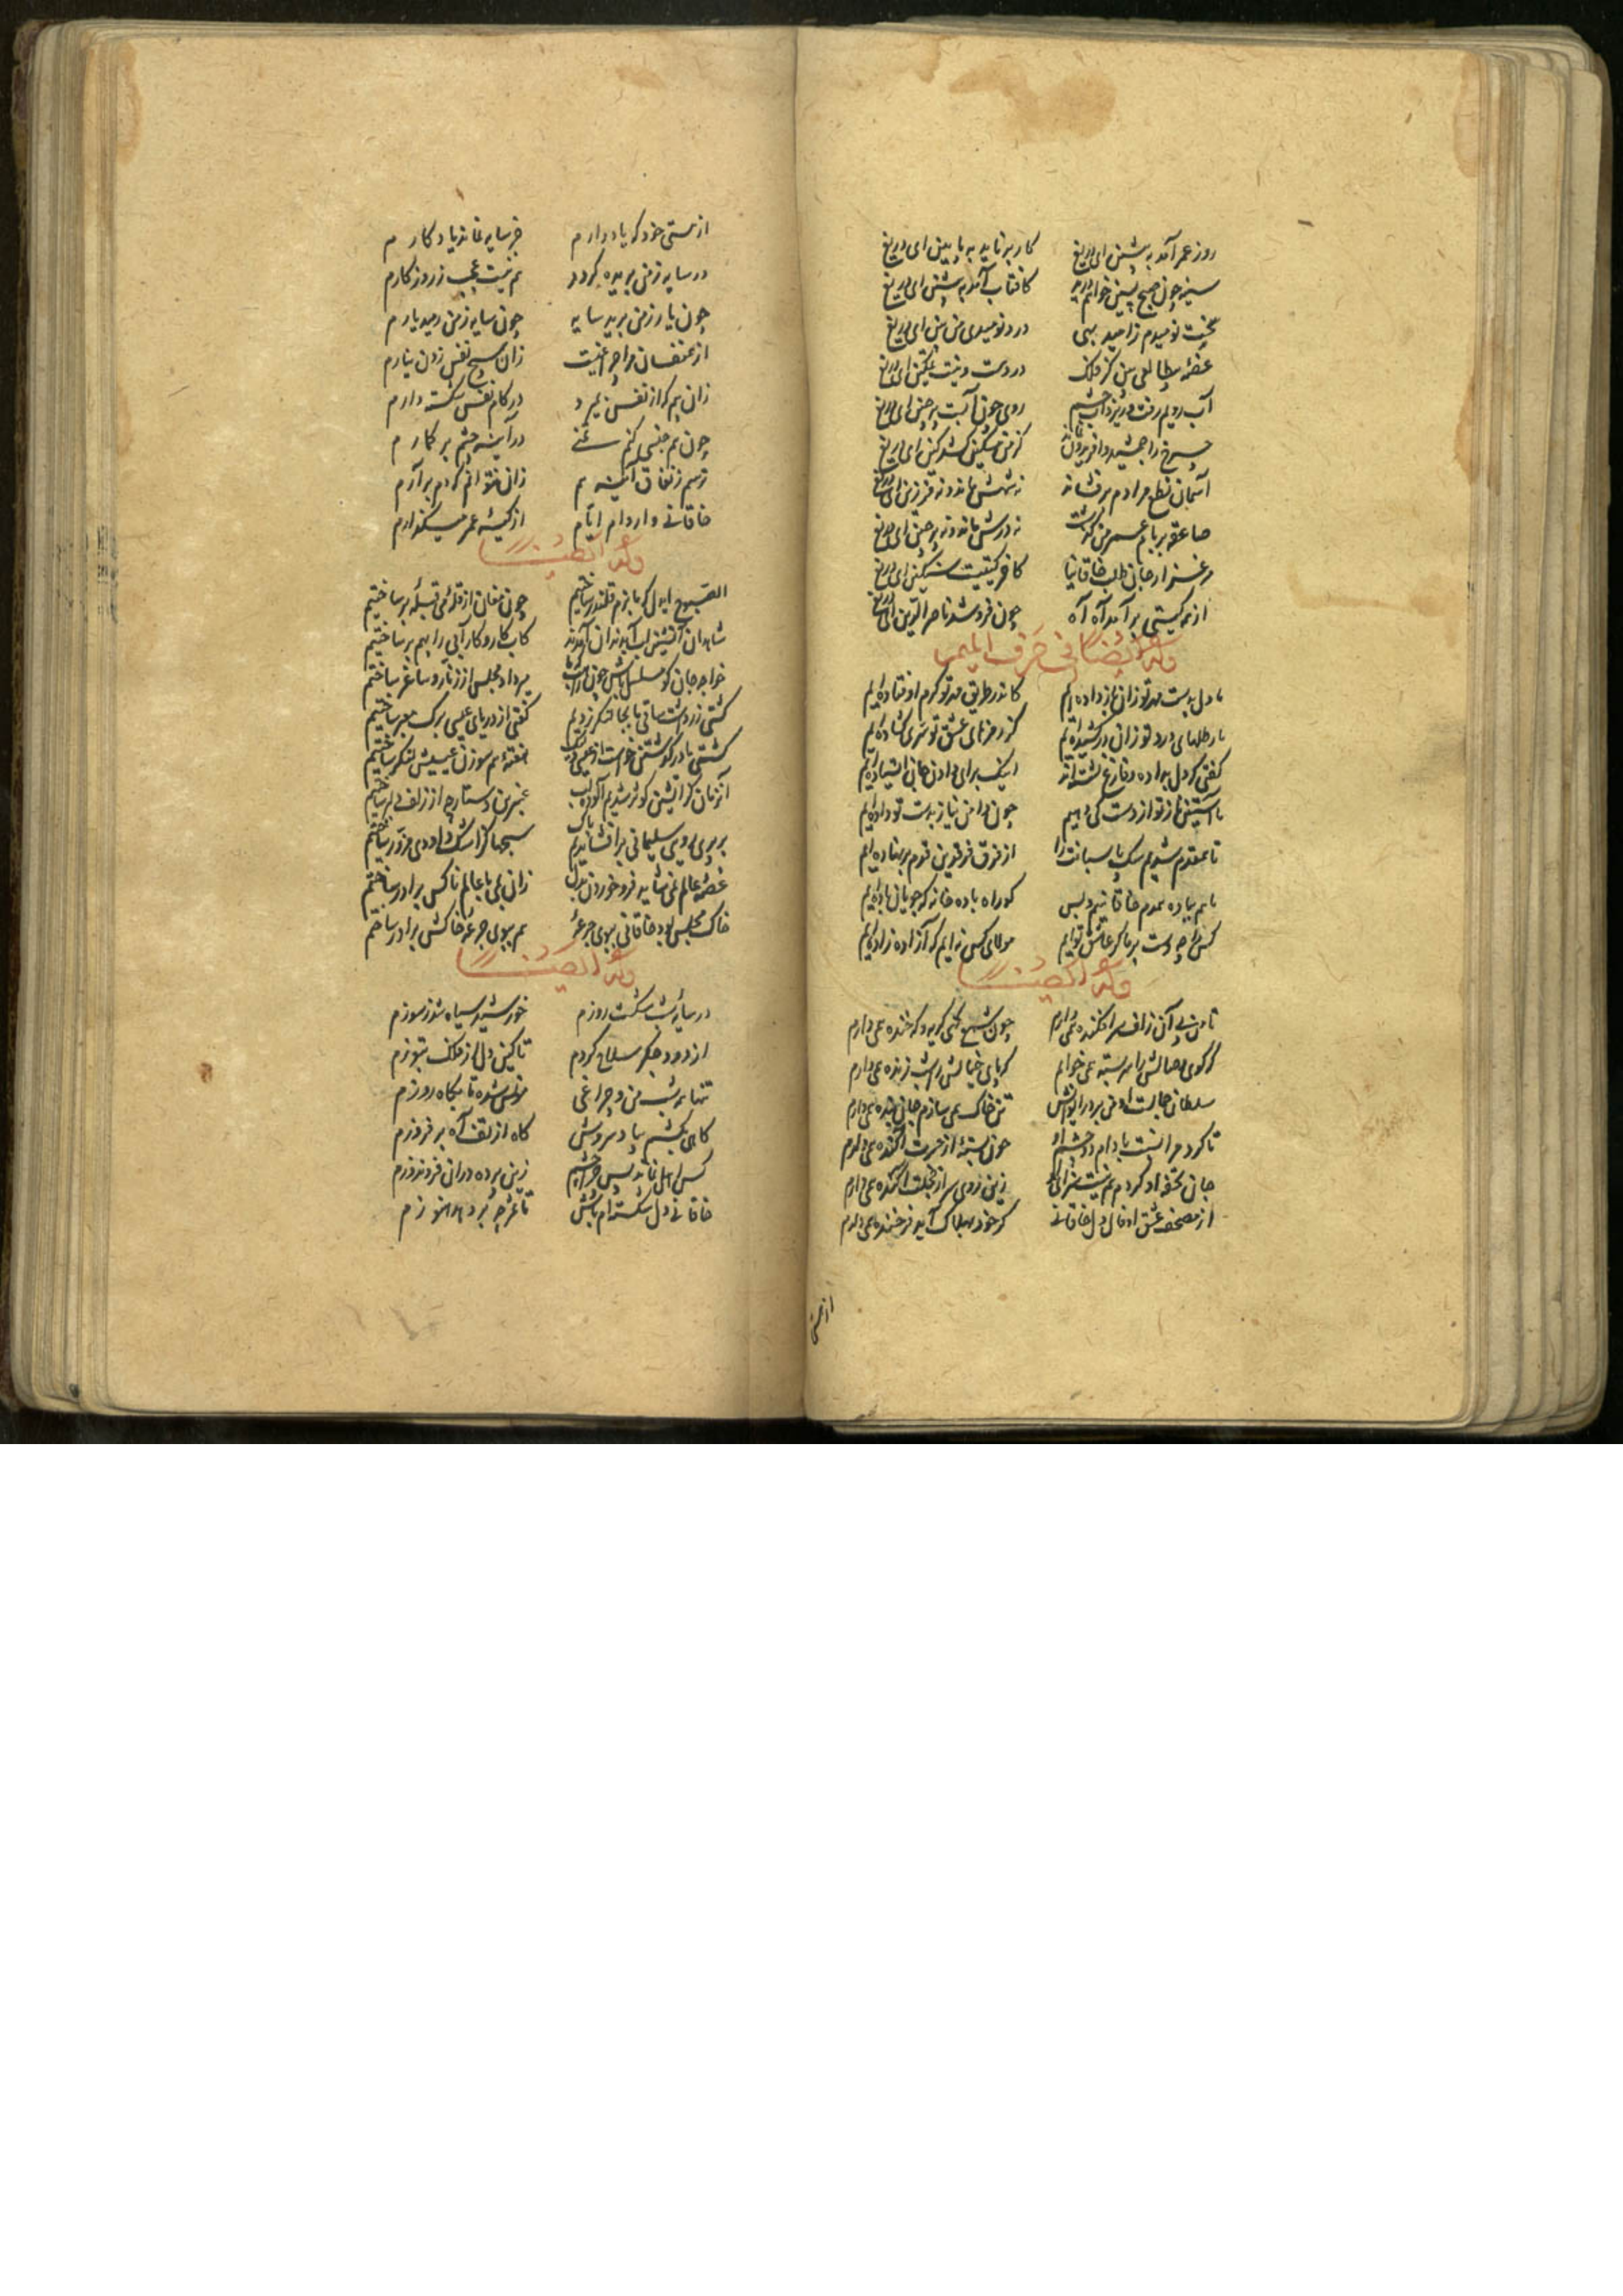 روز عمر آمد به پیشین ای دریغ کار بر ناید به پایین ای دریغ
سینه چون صبح پسین خواهم درید کافتاب آمد به پیشین ای دریغ
بخت نومیدم ز امید بهی درد نومیدی من بین ای دریغ
غصه بی طالعی بین کز فلک درد هست و نیست تسکین ای دریغ
آب رویم رفت و زیر آب چشم روی چون آبست پر چین ای دریغ
چرخ را جمشید و افریدون نماند کز من مسکین کشد کین ای دریغ
آسمان نطع مرادم برفشاند نه شهش ماند و نه فرزین ای دریغ
صاعقه بر بام عمر من گذشت نه درش ماند و نه پرچین ای دریغ
مرغزار جان طلب خاقانیا کافر گیتیست سنگین ای دریغ
از همه گیتی بر آمد آه آه چون فرو شد ناصر الدین ای دریغ
وله ایضا فی حرف المیم
ما دل به دست مهر تو زان باز داده ایم کاندر طریق مهر تو گرم اوفتاده ایم
ما رطلهای درد تو زان در کشیده ایم کز رمزهای عشق تو سری گشاده ایم
گفتی که دل بداده و فارغ نشسته اند اینک برای دادن جان ایستاده ایم
ما آستین ناز تو از دست کی دهیم چون دامن نیاز به دست تو داده ایم
تا همقدم شدیم سگ پاسبانت را از فرق فرقدین قدم بر نهاده ایم
ما هم به باده همدم خاقانییم و بس کو راه باده خانه که جویان باده ایم
کس را چه دست بر ما گر عاشق توایم مولای کس نه ایم که آزاده زاده ایم
وله ایضا
تا من پی آن زلف سر افکنده همی دارم چون شمع گهی گریه و گه خنده همی دارم
گر کوی وصالش را سربسته همی خوانم گر پای خیالش را شب زنده همی دارم
سلطان جمالست او من بر در ایوانش تن خاک همی سازم جان بنده همی دارم
تا کرد مرا بسته بادام دو چشم او چون پسته دل از حسرت آکنده همی دارم
جان تحفه او کردم هم نیست سزای او زین روی سر از خجلت افکنده همی دارم
از مصحف عشق او فال دل خاقانی گر خود به هلاک آید فرخنده همی دارم
از هستی
از هستی خود که یاد دارم جز سایه نماند یادگارم
در سایه ز من بریده گردد هم نیست عجب ز روزگارم
چون یار ز من برید سایه چون سایه ز من رمید یارم
از همنفسان مرا چراغیست زان هیچ نفس زدن نیارم
زان بیم که از نفس بمیرد در کام نفس شکسته دارم
چون هم جنسی کنم تمنی در آینه چشم بر گمارم
ترسم ز نفاق آینه هم زان نتوانم که دم برآرم
خاقانی وار وام ایام از کیسه عمر میگذارم
وله ایضا
الصبوح ای دل که ما بزم قلندر ساختیم چون مغان از قله می قبله برساختیم
شاهدان آتشین لب آب دندان آمدند کاب کار و کار آبی را بهم برساختیم
خواجه جان گو مسلسل باش چون راهب که ما میرداد مجلس از زنار و ساغر ساختیم
کشتی زر دست ساقی ما بجا لنگر زدیم گفتی از دریای عیسی برگ معبر ساختیم
کشتی ما در گذشتن خواست از عیسی ولیک هفتم هم سوزن عیسیش لنگر ساختیم
آنزمان کز آتشین کوثر شدیم آلوده لب عنبرین دستارچه از زلف دلبر ساختیم
بر پری رویی سلیمانی برافشاندیم پاک سبحها کز اشک داودی مزور ساختیم
غصه عالم نمی شاید فرو خوردن بدل زان بهی با عالم ناکس برادر ساختیم
خاک مجلس بود خاقانی ببوی جرعه هم ببوی جرعه خاکش برادر ساختیم
وله ایضا
در سایه شب شکست روزم خورشید سیاه شد ز سوزم
از دود جگر سلاح کردم تا کین دل از فلک بتوزم
تنها همه شب من و چراغی مونس شده تا بگاه روزم
گاهی بکشم به باد سردش گاه از تف آه برفروزم
کس اهل نماند پس چرا چشم زین پرده دران فرو ندوزم
خاقانی دل شکسته ام باش تا عمر چه بر دهد هنوزم